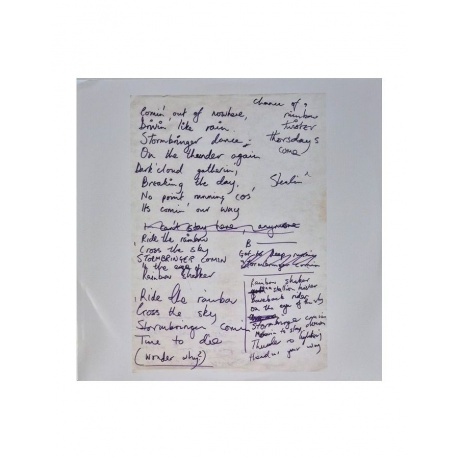 Comin' out of nowhere,
Drivin' like rain.
Stormbringer dance,
On the thunder again
Dark cloud gatherin,
Breaking the day,
No point running cos'
Its comin' our way
chance of a
rainbow
twister
Thorsday's
come
Stealin'
I can't stay here, anymore
Ride the rainbow
Cross the sky
STORMBRINGER COMIN
the eye
Rainbow shaker
Ride the rainbow
Cross the sky
Stormbringer comin
Time to die
(wonder why?)
B
Got to keep
Stormbringer
Rainbow shaker
stallion
Bareback rider
on the eye of the sky
Stormbringer comin
to stay
Thunder n lightning
Headin your way